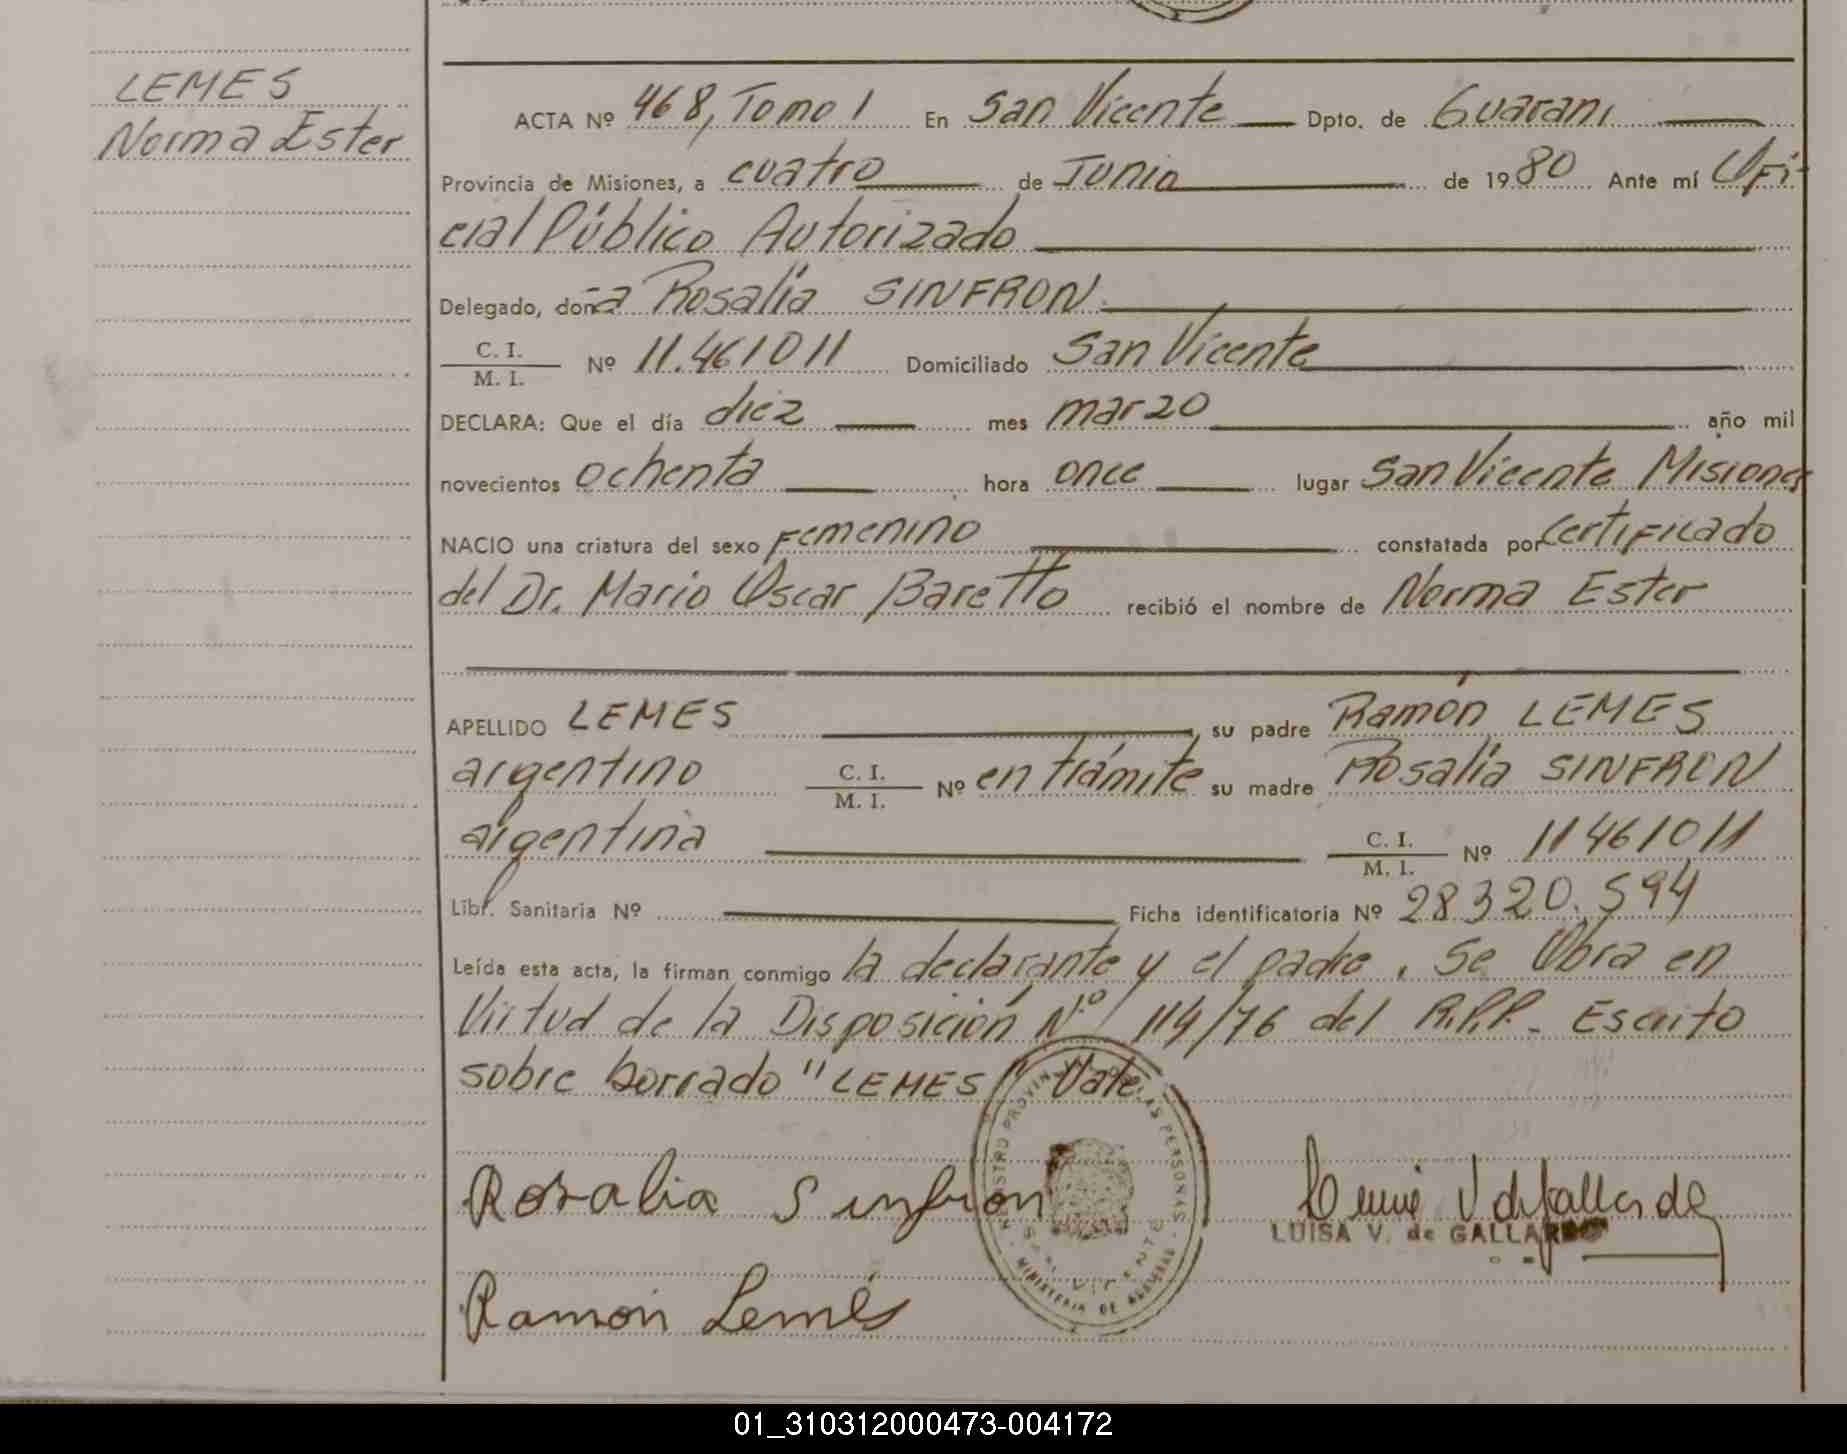 LEMES
Norma Ester
ACTA Nº 468, Tomo I En San Vicente Dpto. de Guaraní
Provincia de Misiones, a cuatro de Junio de 1980 Ante mí Ofi-
cial Público Autorizado
Delegado, doña Rosalía SINFRON
C. I.
M. I. Nº 11.461011 Domiciliado San Vicente
DECLARA: Que el día diez mes marzo año mil
novecientos ochenta hora once lugar San Vicente Misiones
NACIO una criatura del sexo Femenino constatada por Certificado
del Dr. Mario Oscar Baretto recibió el nombre de Norma Ester
APELLIDO LEMES, su padre Ramón LEMES
argentino C. I.
M. I. Nº en trámite su madre Rosalía SINFRON
argentina C. I.
M. I. Nº 11461011
Libr. Sanitaria Nº Ficha identificatoria Nº 28320.594
Leída esta acta, la firman conmigo la declarante y el padre. Se Obra en
Virtud de la Disposición Nº 114/76 del R.P.P. Escrito
sobre borrado "LEMES" Vale
REGISTRO PROVINCIAL DE LAS PERSONAS
SAN VICENTE
MINISTERIO DE
Rosalia Sinfron
LUISA V. de GALLARDO
Ramón Lemés
01_310312000473-004172